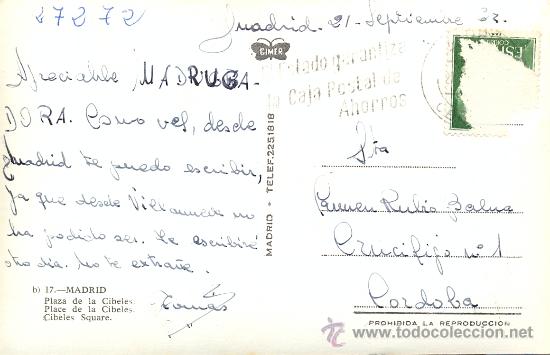 47272
Madrid. 21-Septiembre 63.
CIMER
Apreciable MADRUGA-
DORA. Como ves, desde
Madrid te puedo escribir,
ya que desde no
ha podido ser. Te escribiré
otro día. No te extrañe.
Tomás
b) 17.—MADRID
Plaza de la Cibeles.
Place de la Cibeles.
Cibeles Square.
MADRID - TELEF. 2251818
El Estado garantiza
la Caja Postal de
Ahorros
ESP
CORREOS
Srta
Carmen Rubio
Crucifijo nº 1
Cordoba
PROHIBIDA LA REPRODUCCIÓN
todocoleccion.net